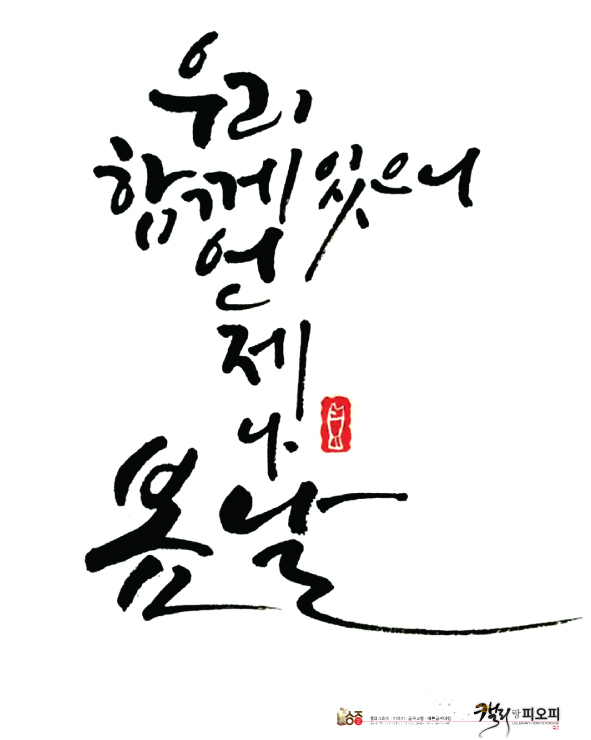 우리
함께 있으니
언
제
나
봄날
캘리랑피오피